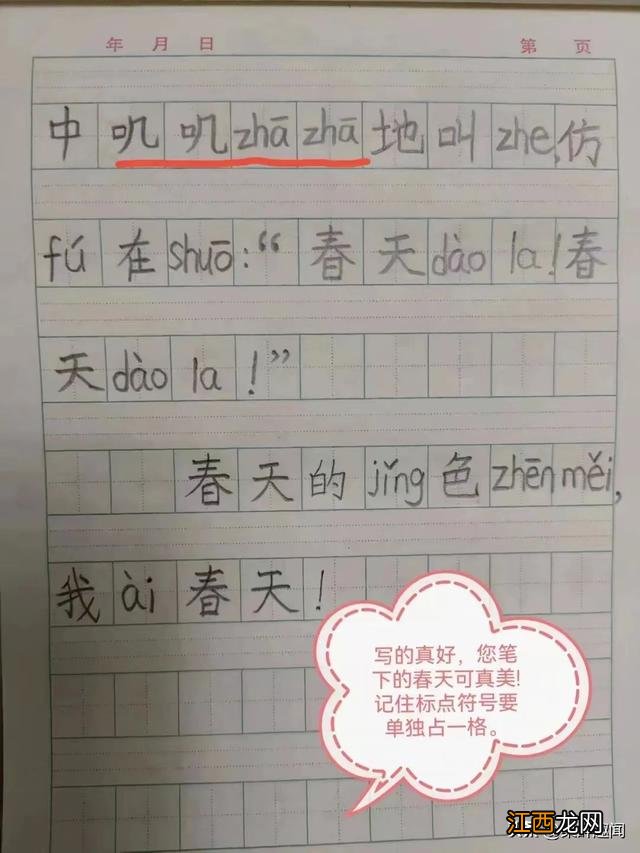 年 月 日 第 页
中叽叽zhāzhā地叫zhe,仿
fú在shuō:“春天dào la!春
天dào la!”
春天的jǐng色zhēnměi,
我ài春天!
写的真好,您笔
下的春天可真美!
记住标点符号要
单独占一格。
江西龙网